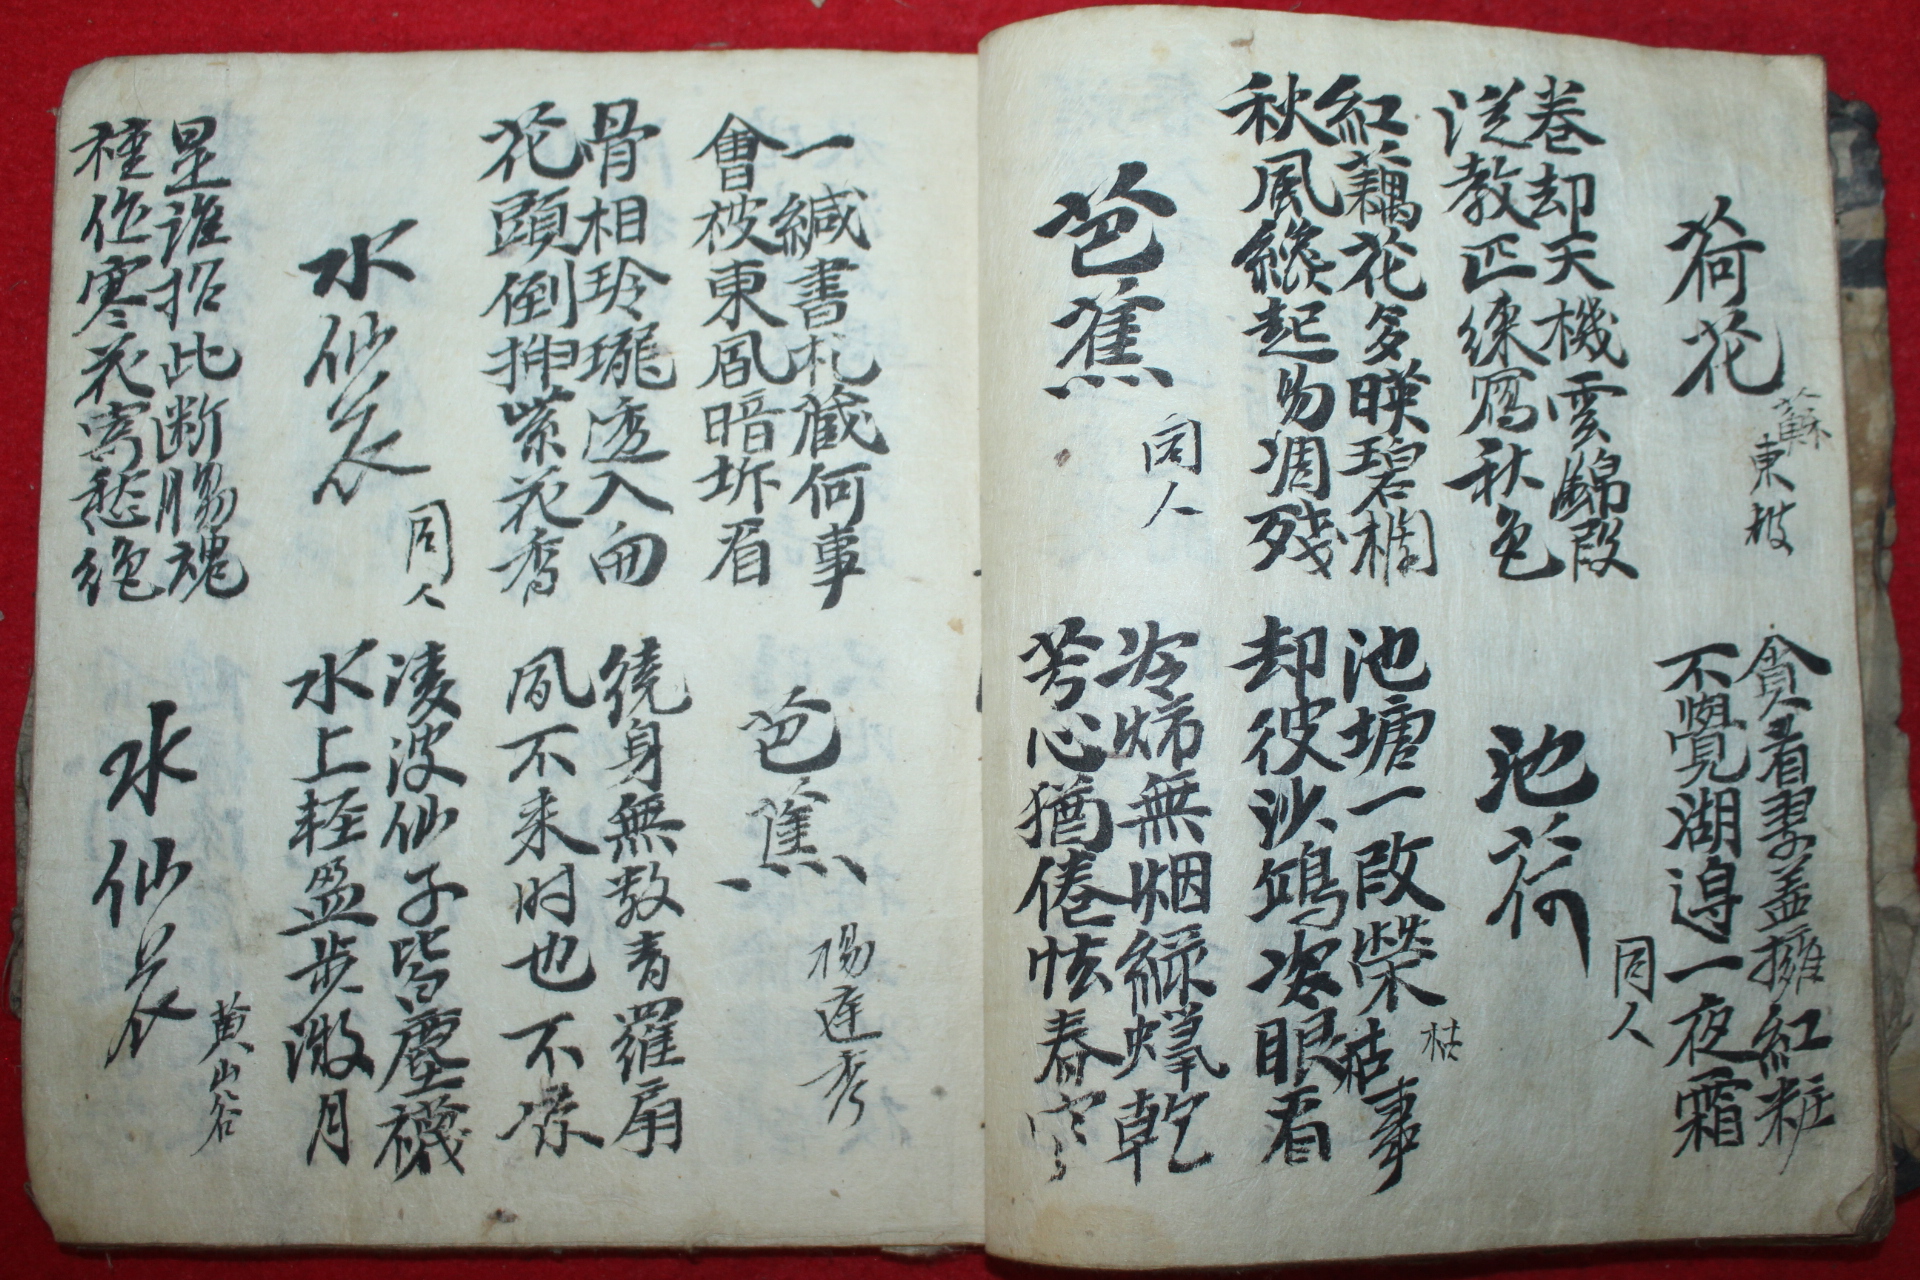 荷花
蘇東坡
貪看翠盖擁紅粧
不覺湖邉一夜霜
卷却天機雲錦段
従教匹練寫秋色
池荷
同人
紅藕花多暎碧欄
秋風纔起易凋残
池塘一段榮枯事
枯
却彼沙鴎姿眼看
芭蕉
同人
冷燭無烟綠蠟乾
芳心猶倦怯春寒
一緘書札藏何事
會被東風暗坼看
芭蕉
楊廷秀
骨相玲瓏透入窗
花頭倒挿紫花香
繞身無数青羅扇
風不来时也不凉
水仙花
同人
凌波仙子生塵襪
水上軽盈步微月
是谁招此断腸魂
種作寒花寄愁絶
水仙花
黄山谷